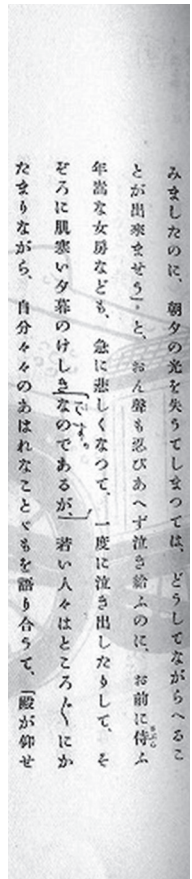 みましたのに、朝夕の光を失うてしまつては、どうしてながらへるこ
とが出來ませう」。と、おん聲も忍びあへず泣き給ふのに、お前に侍ふ
年嵩な女房なども、急に悲しくなつて、一度に泣き出したりして、そ
ぞろに肌寒い夕暮のけしきなのであるが、若い人々はところ〴〵にか
です。
たまりながら、自分々々のあはれなことゞもを語り合うて、「殿が仰せ